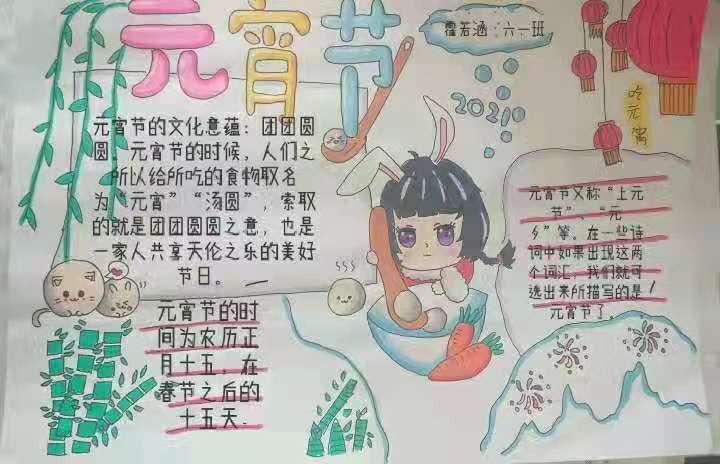 元宵节
霍若涵:六一班
2021
吃元宵
元宵节的文化意蕴:团团圆
圆。元宵节的时候,人们之
所以给所吃的食物取名
为“元宵”“汤圆”,索取
的就是团团圆圆之意,也是
一家人共享天伦之乐的美好
节日。
元宵节的时
间为农历正
月十五,在
春节之后的
十五天.
元宵节又称“上元
节”、“元
夕”等。在一些诗
词中如果出现这两
个词汇,我们就可
选出来所描写的是
元宵节了。